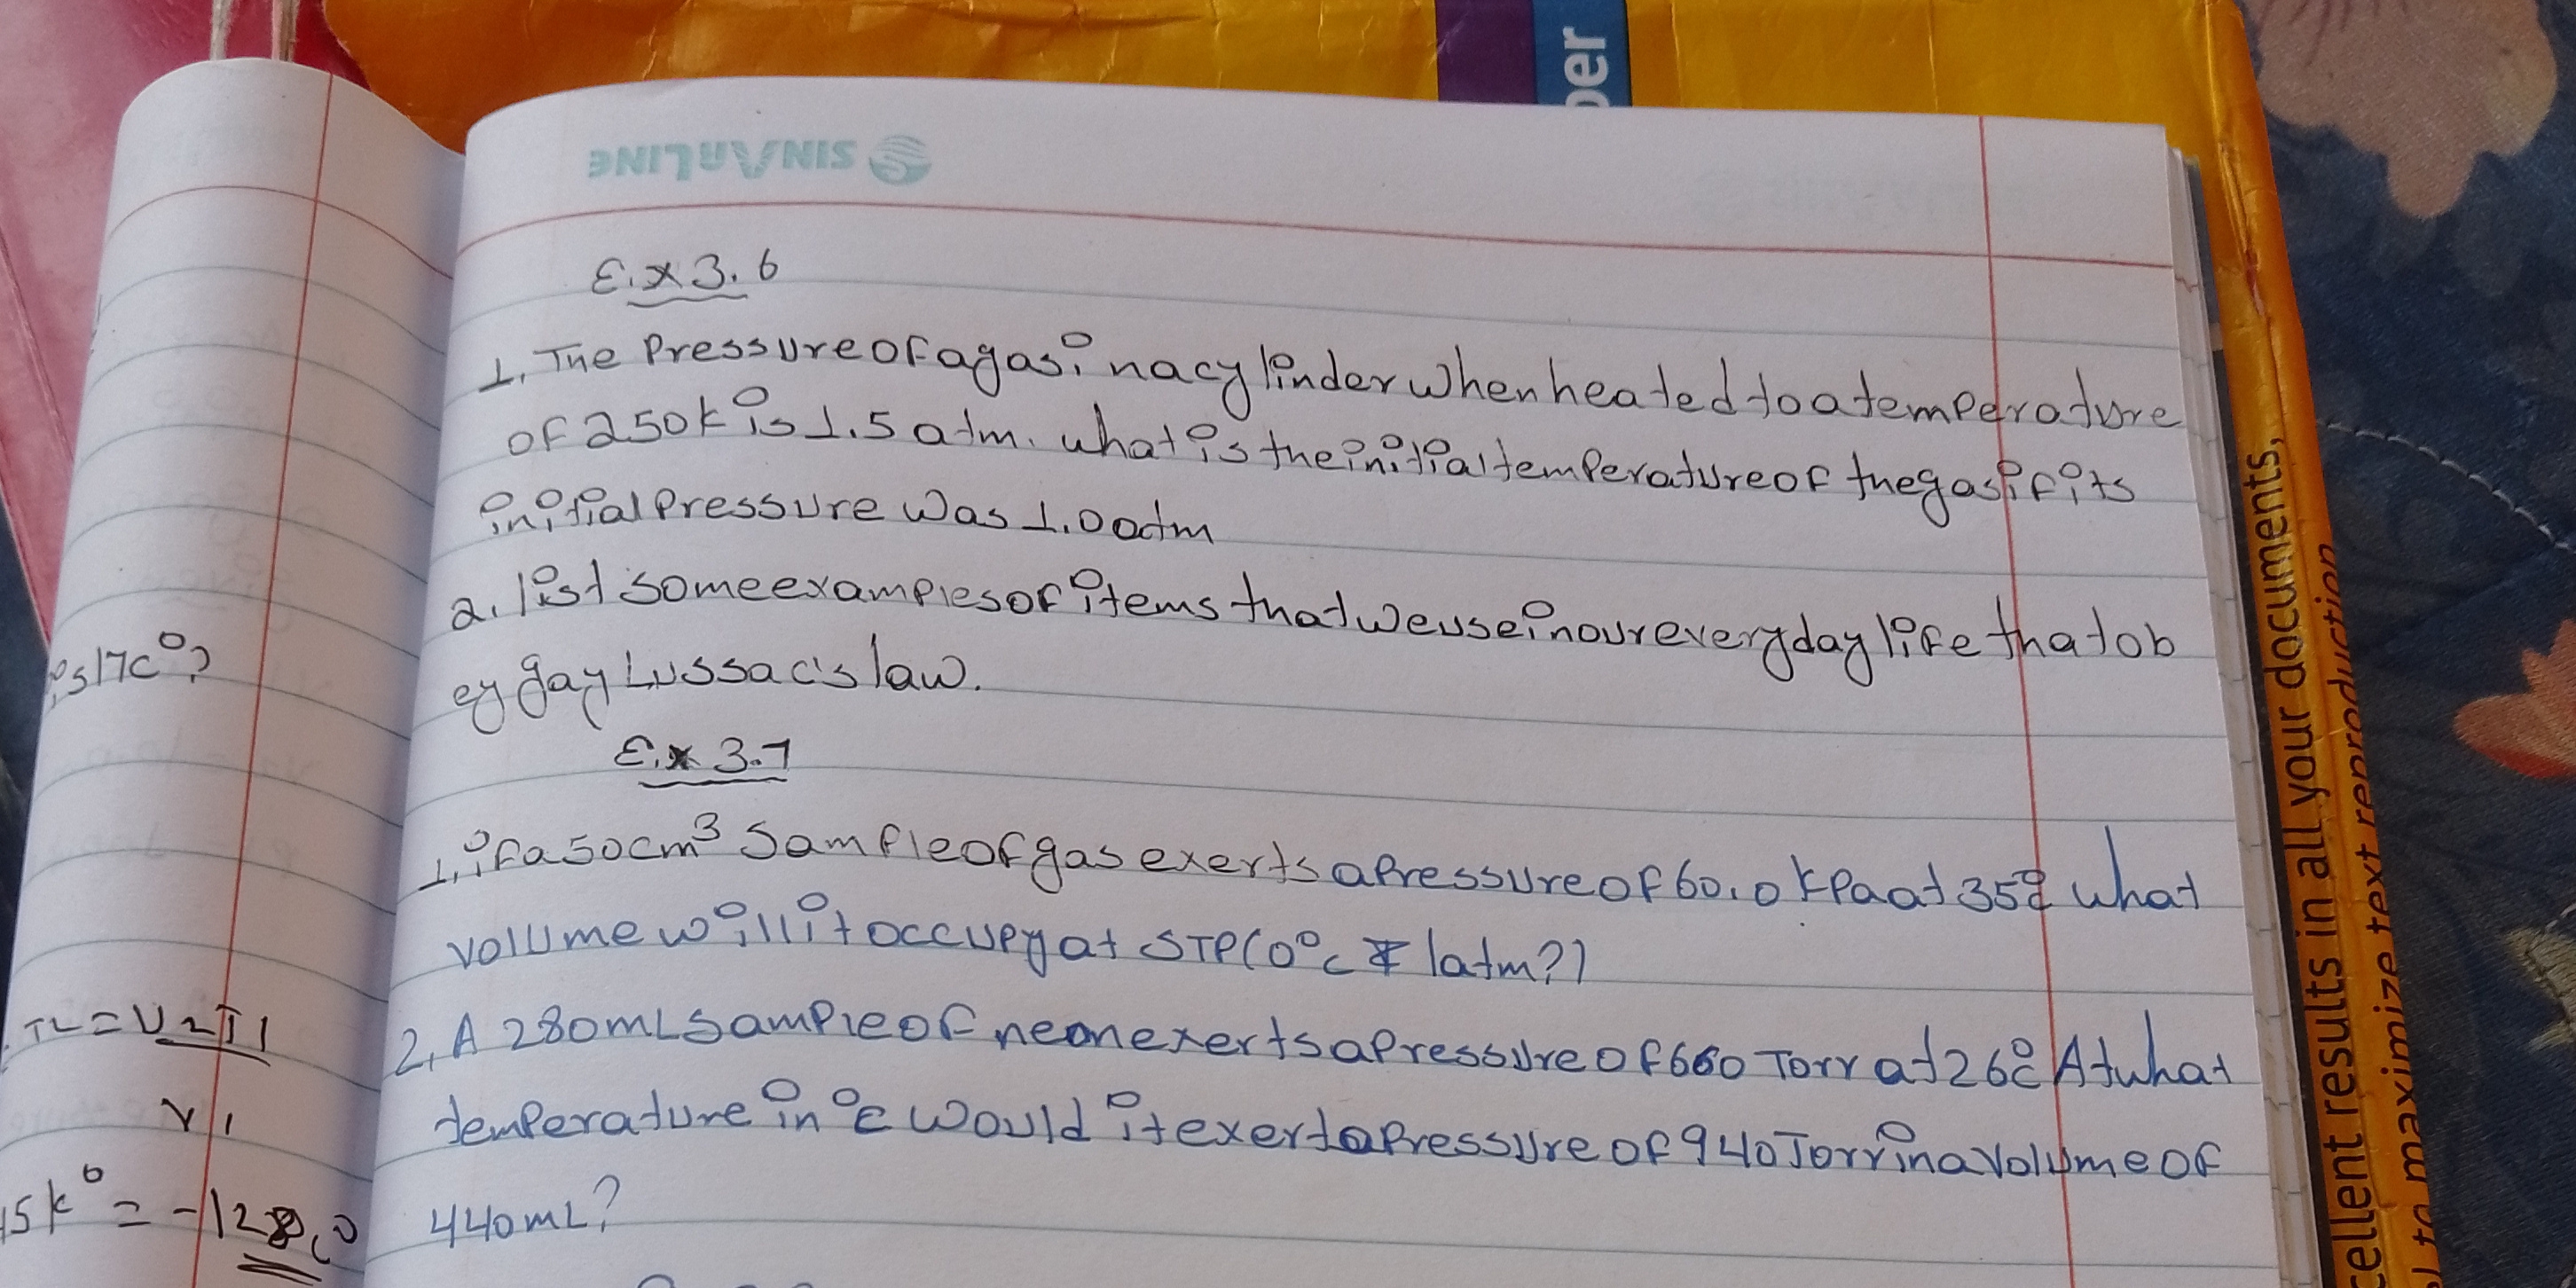 per
SINARLINE
E.x 3.6
1. The Pressure of a gas in a cylinder when heated to a temperature
of 250k is 1.5 atm. what is the initial temperature of the gas if its
initial Pressure was 1.00atm
2. list some examples of items that we use in our every day life that ob
ey gay Lussac's law.
E.x 3.7
1. if a 50cm³ Sample of gas exerts a Pressure of 60.0 kPa at 35°c what
volume will it occupy at STP(0°c & 1atm?)
2. A 280mL sample of neon exerts a Pressure of 660 Torr at 26°c At what
temperature in °c would it exert a Pressure of 940 Torr in a Volume of
440mL?
is 17c°?
T2 = V2T1
V1
15k° = -128c°
cellent results in all your documents,
to maximize text reproduction